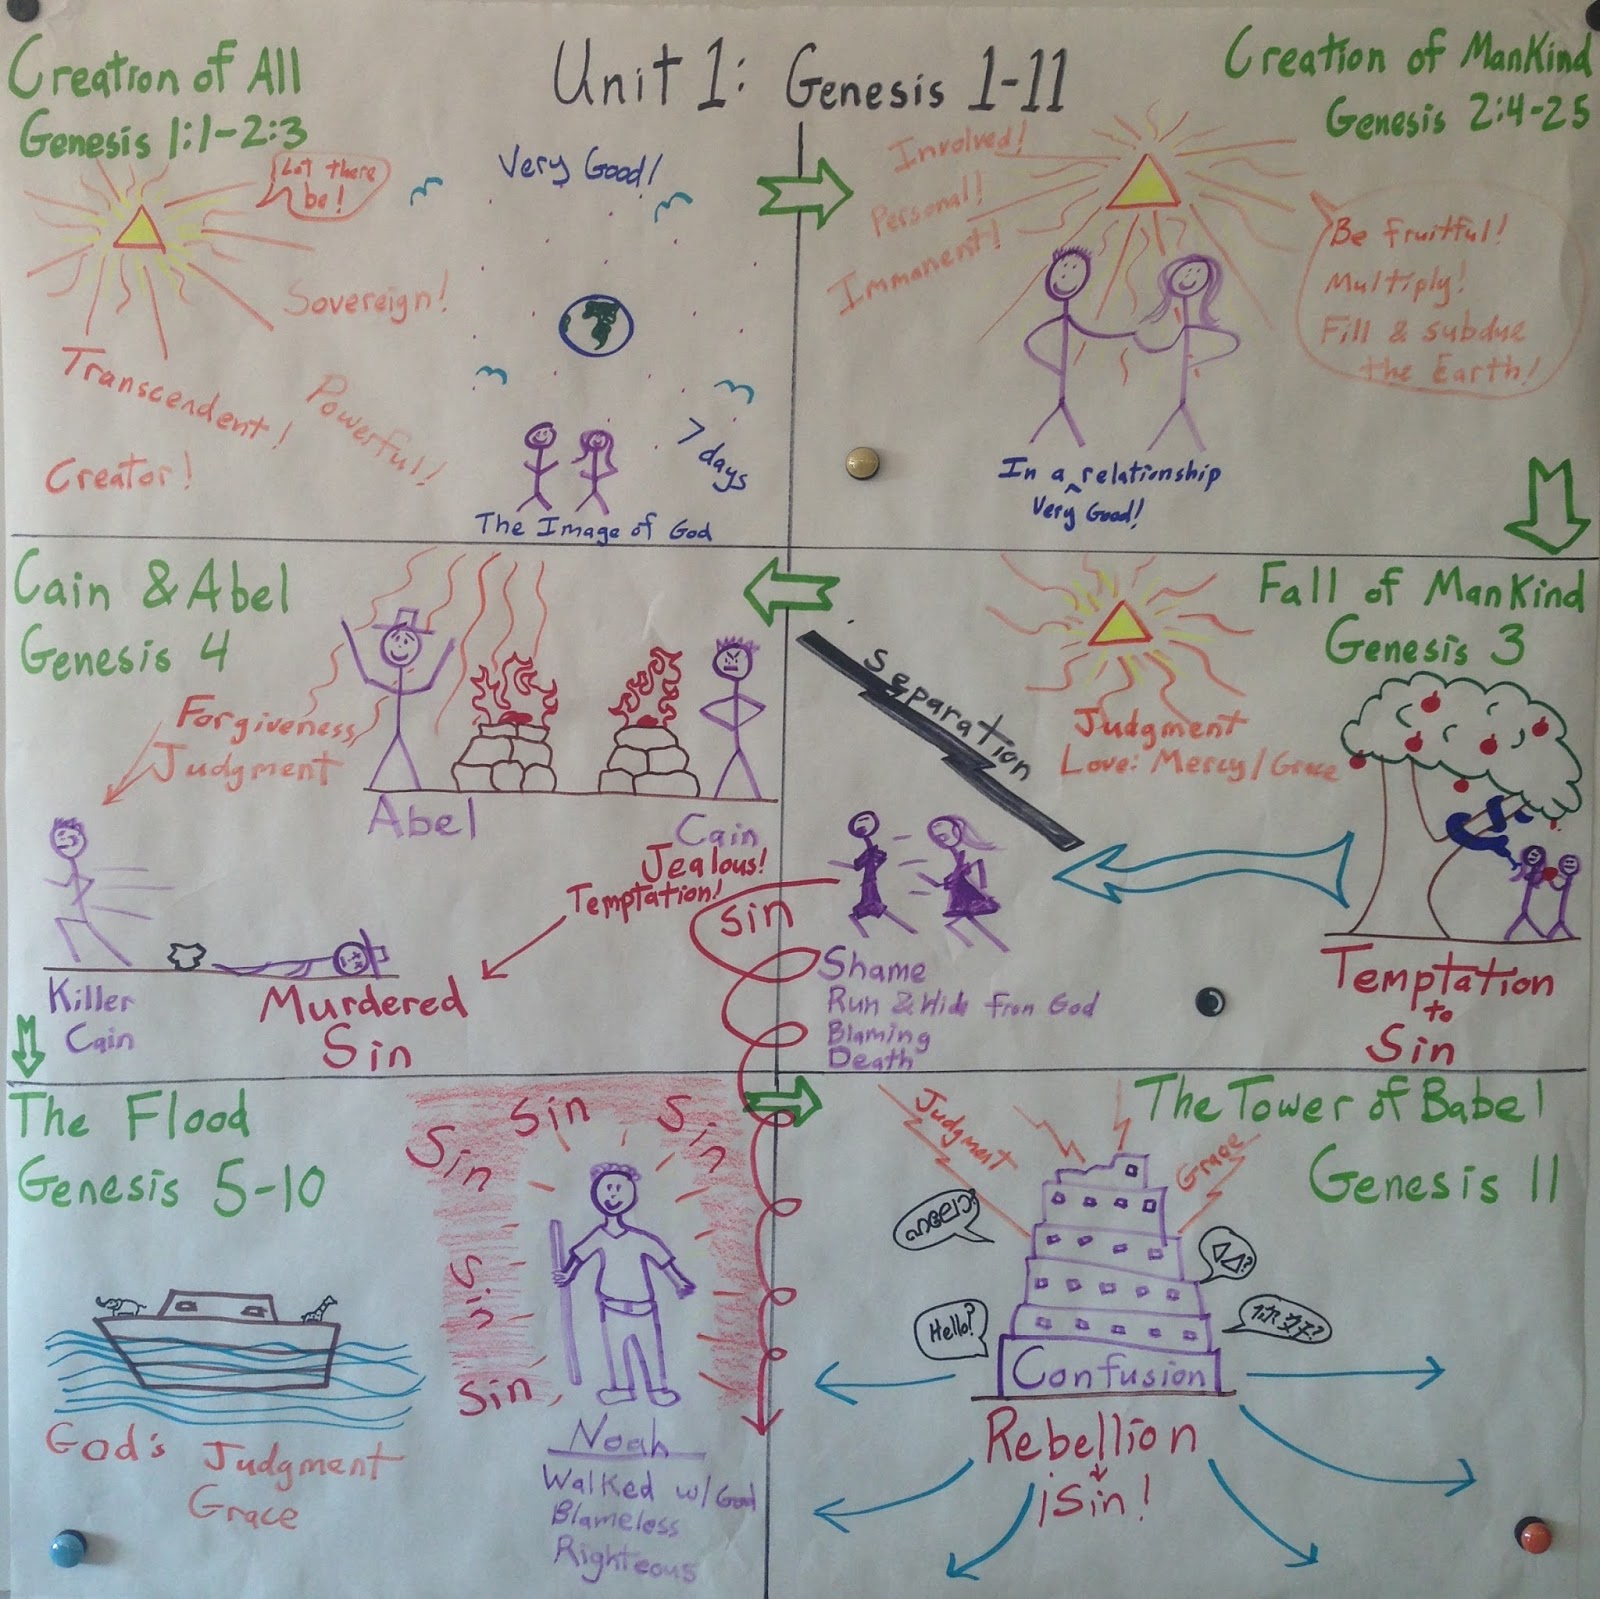 Unit 1: Genesis 1-11
Creation of All
Genesis 1:1-2:3
Let there
be!
Very Good!
Sovereign!
Transcendent!
Powerful!
Creator!
7
days
The Image of God
Creation of ManKind
Genesis 2:4-25
Involved!
Personal!
Immanent!
Be fruitful!
Multiply!
Fill & subdue
the Earth!
In a relationship
Very Good!
Fall of ManKind
Genesis 3
Separation
Judgment
Love: Mercy/Grace
Temptation
to
Sin
Shame
Run & Hide from God
Blaming
Death
sin
Cain & Abel
Genesis 4
Forgiveness,
Judgment
Abel
Cain
Jealous!
Temptation!
Killer
Cain
Murdered
Sin
The Flood
Genesis 5-10
Sin
Sin
Sin
Sin
Sin
God's Judgment
Grace
Noah
Walked w/ God
Blameless
Righteous
The Tower of Babel
Genesis 11
Judgment
Grace
ഹലോ?
Hello?
你好?
Confusion
Rebellion
¡Sin!